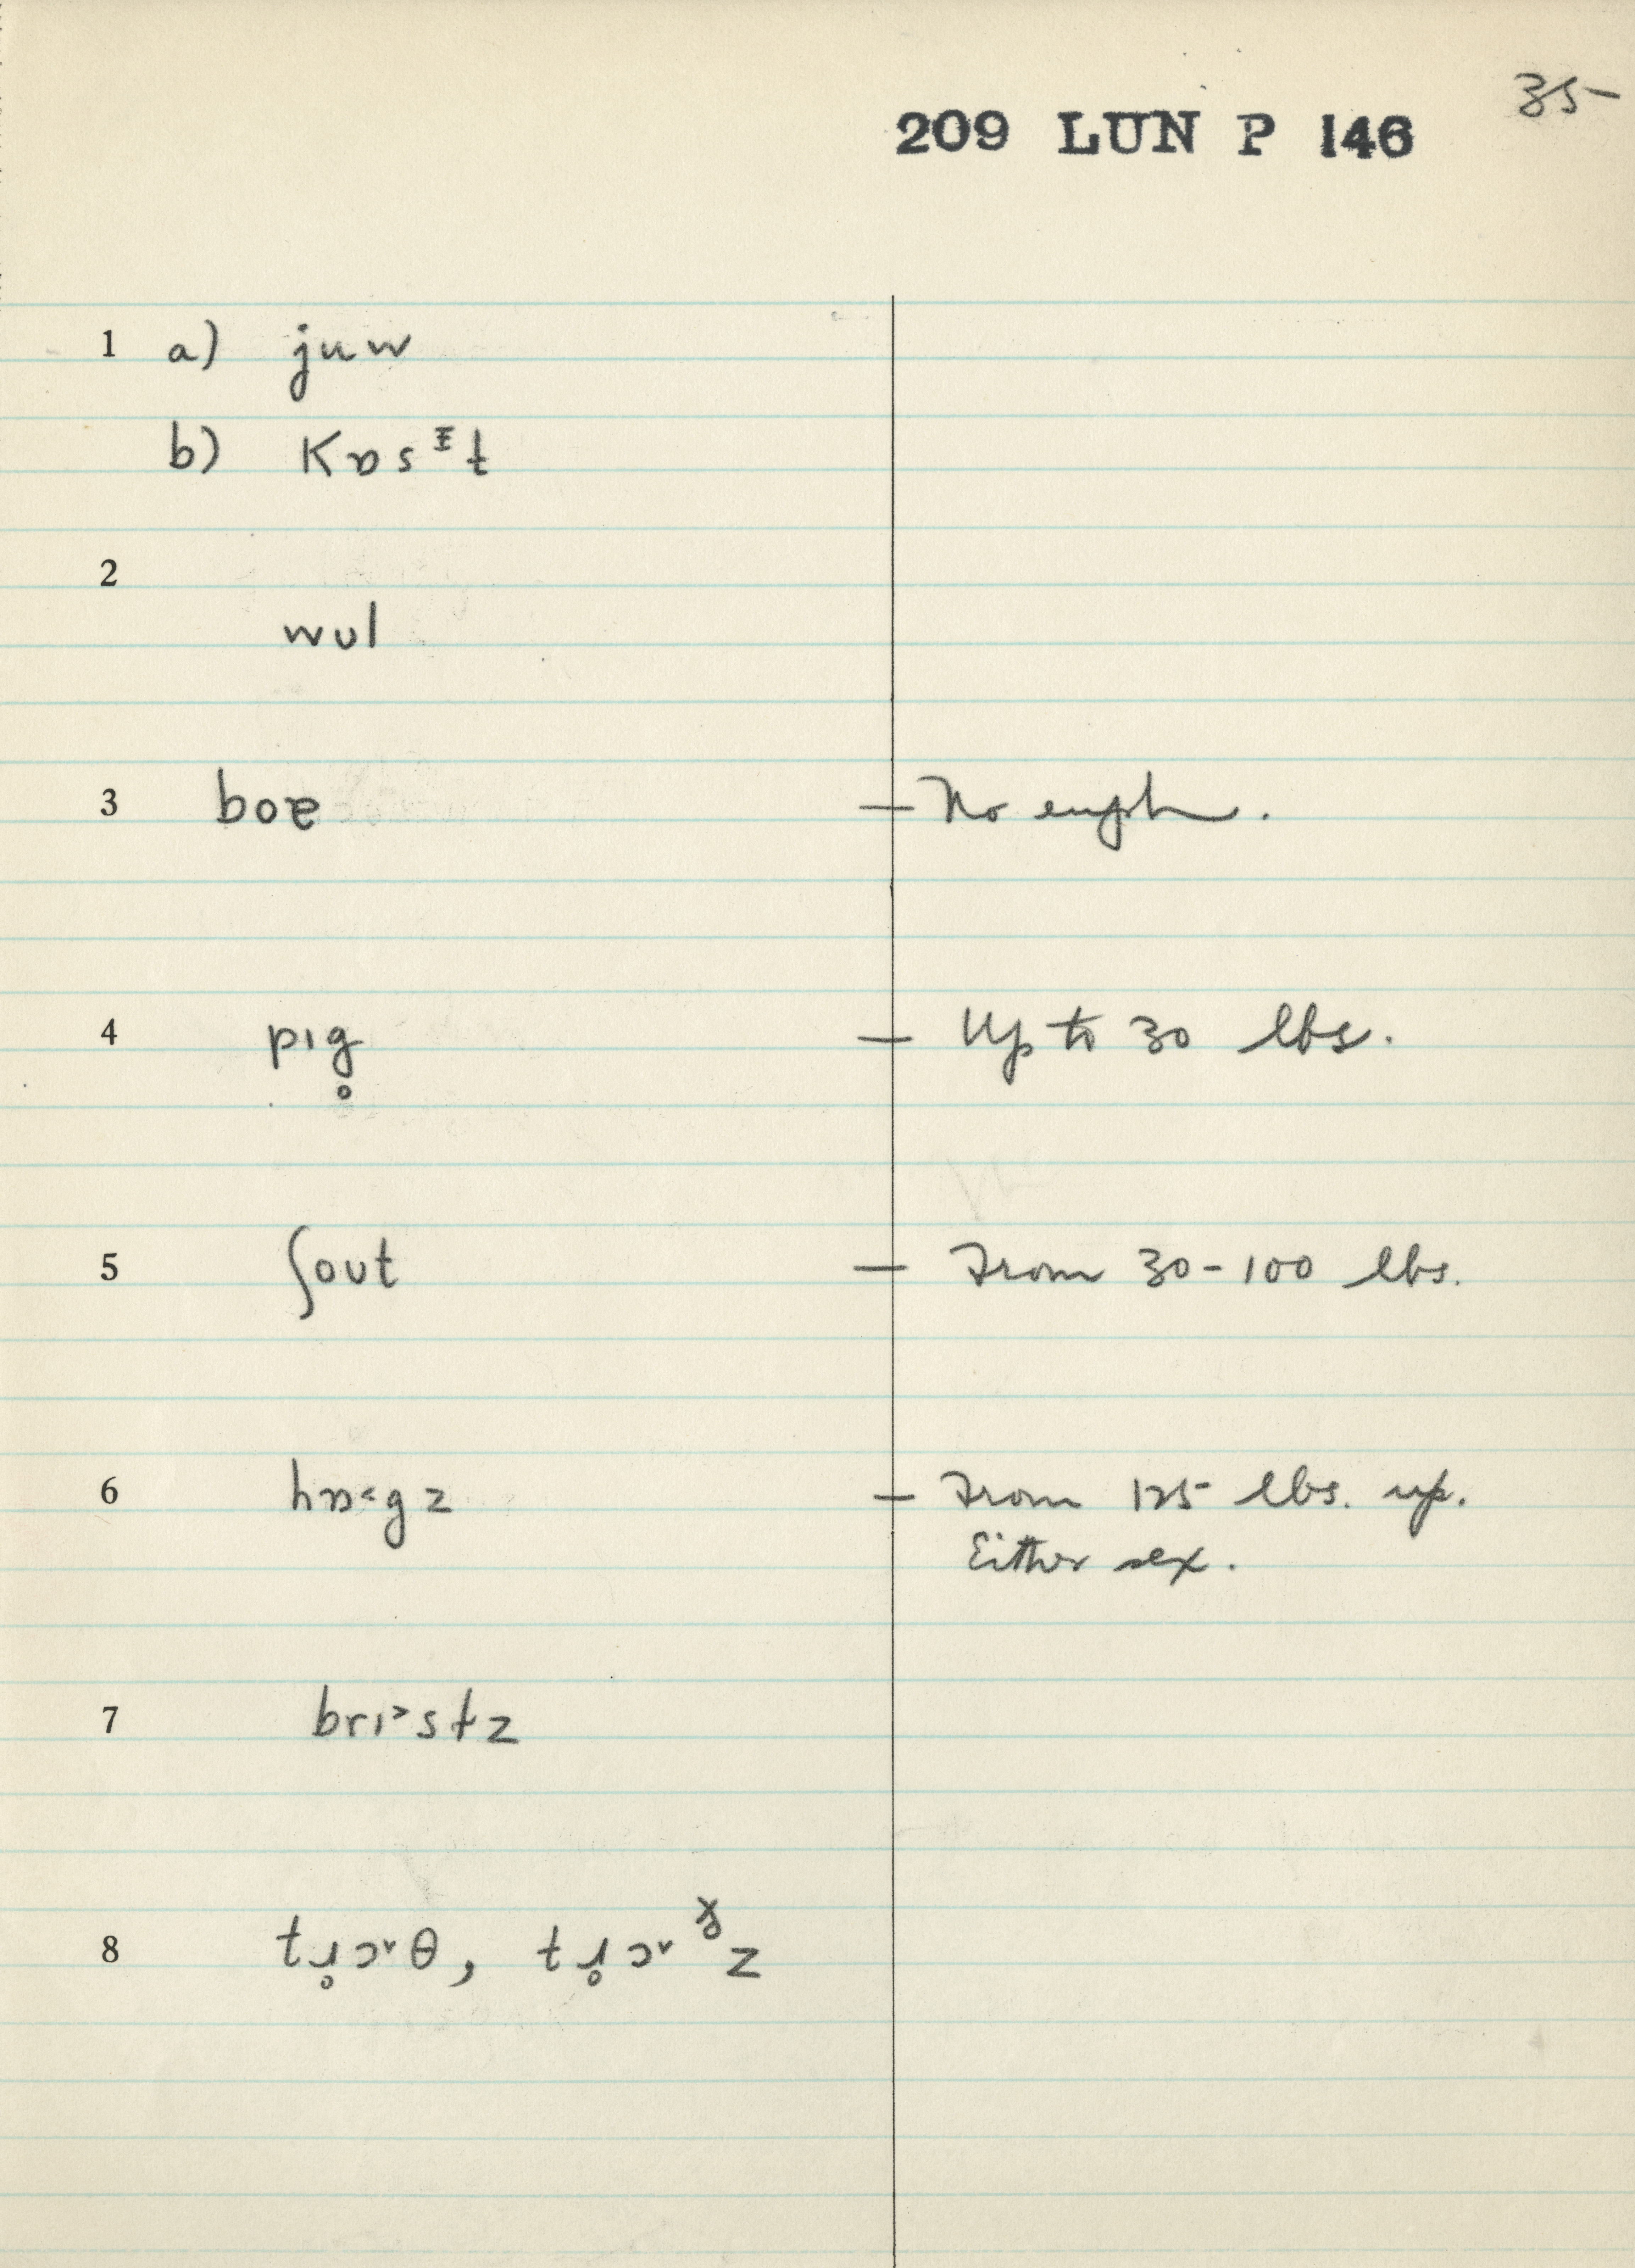 35
209 LUN P 146
1 a) juw
b) Kɒsᵻt
2
wʊl
3 boɐ — No euph.
4 pɪg̥ — Up to 30 lbs.
5 ʃoʊt — From 30-100 lbs.
6 hɒ˂gz — From 125 lbs. up.
Either sex.
7 brɪ˃stz
8 tɹ̥ɔ˅θ, tɹ̥ɔ˅ᵟz